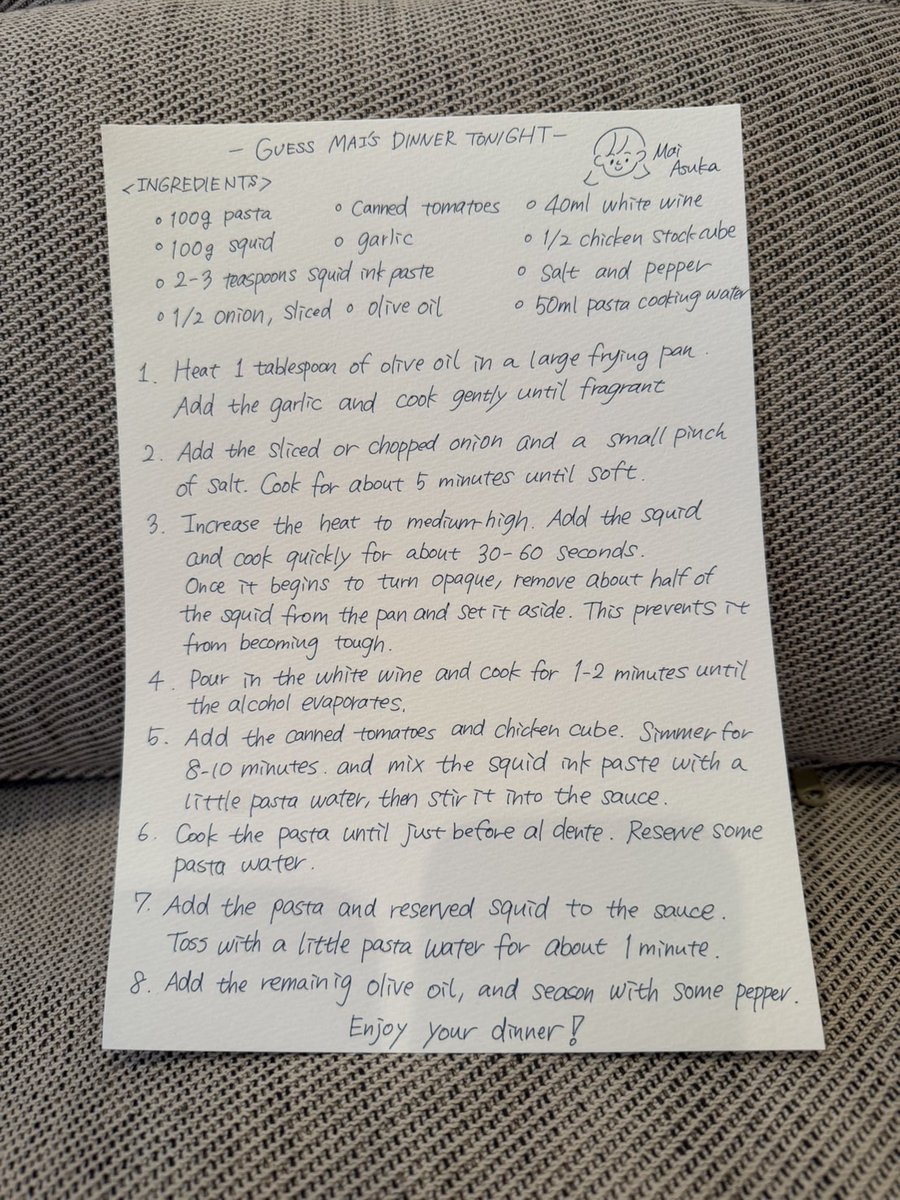 - GUESS MAI'S DINNER TONIGHT -
Mai
Asuka
<INGREDIENTS>
○ 100g pasta ○ Canned tomatoes ○ 40ml white wine
○ 100g squid ○ garlic ○ 1/2 chicken stock cube
○ 2-3 teaspoons squid ink paste ○ Salt and pepper
○ 1/2 onion, sliced ○ olive oil ○ 50ml pasta cooking water
1. Heat 1 tablespoon of olive oil in a large frying pan.
Add the garlic and cook gently until fragrant
2. Add the sliced or chopped onion and a small pinch
of salt. Cook for about 5 minutes until soft.
3. Increase the heat to medium-high. Add the squid
and cook quickly for about 30-60 seconds.
Once it begins to turn opaque, remove about half of
the squid from the pan and set it aside. This prevents it
from becoming tough.
4. Pour in the white wine and cook for 1-2 minutes until
the alcohol evaporates.
5. Add the canned tomatoes and chicken cube. Simmer for
8-10 minutes. and mix the squid ink paste with a
little pasta water, then stir it into the sauce.
6. Cook the pasta until just before al dente. Reserve some
pasta water.
7. Add the pasta and reserved squid to the sauce.
Toss with a little pasta water for about 1 minute.
8. Add the remainig olive oil, and season with some pepper.
Enjoy your dinner!